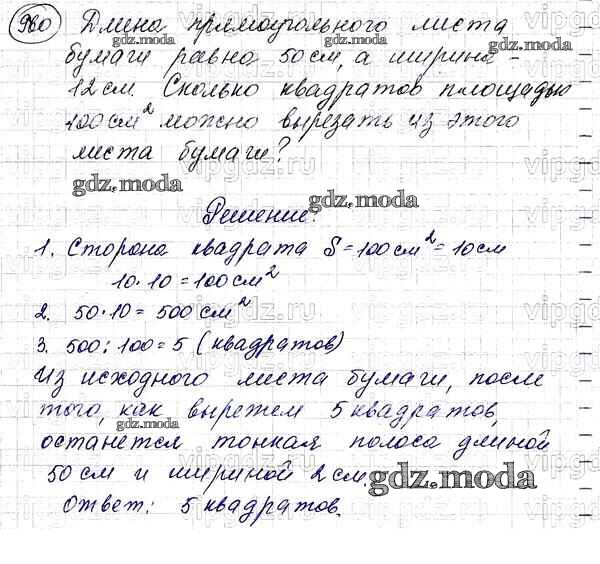 980 Длина прямоугольного листа
gdz.moda gdz.moda
бумаги равна 50 см, а ширина -
12 см. Сколько квадратов площадью
100 см² можно вырезать из этого
листа бумаги?
gdz.moda
Решение:
1. Сторона квадрата S = 100 см² = 10 см
10 · 10 = 100 см²
2. 50 · 10 = 500 см²
3. 500 : 100 = 5 (квадратов)
Из исходного листа бумаги, после
того, как вырежем 5 квадратов,
останется тонкая полоса длиной
50 см и шириной 2 см.
gdz.moda
Ответ: 5 квадратов.